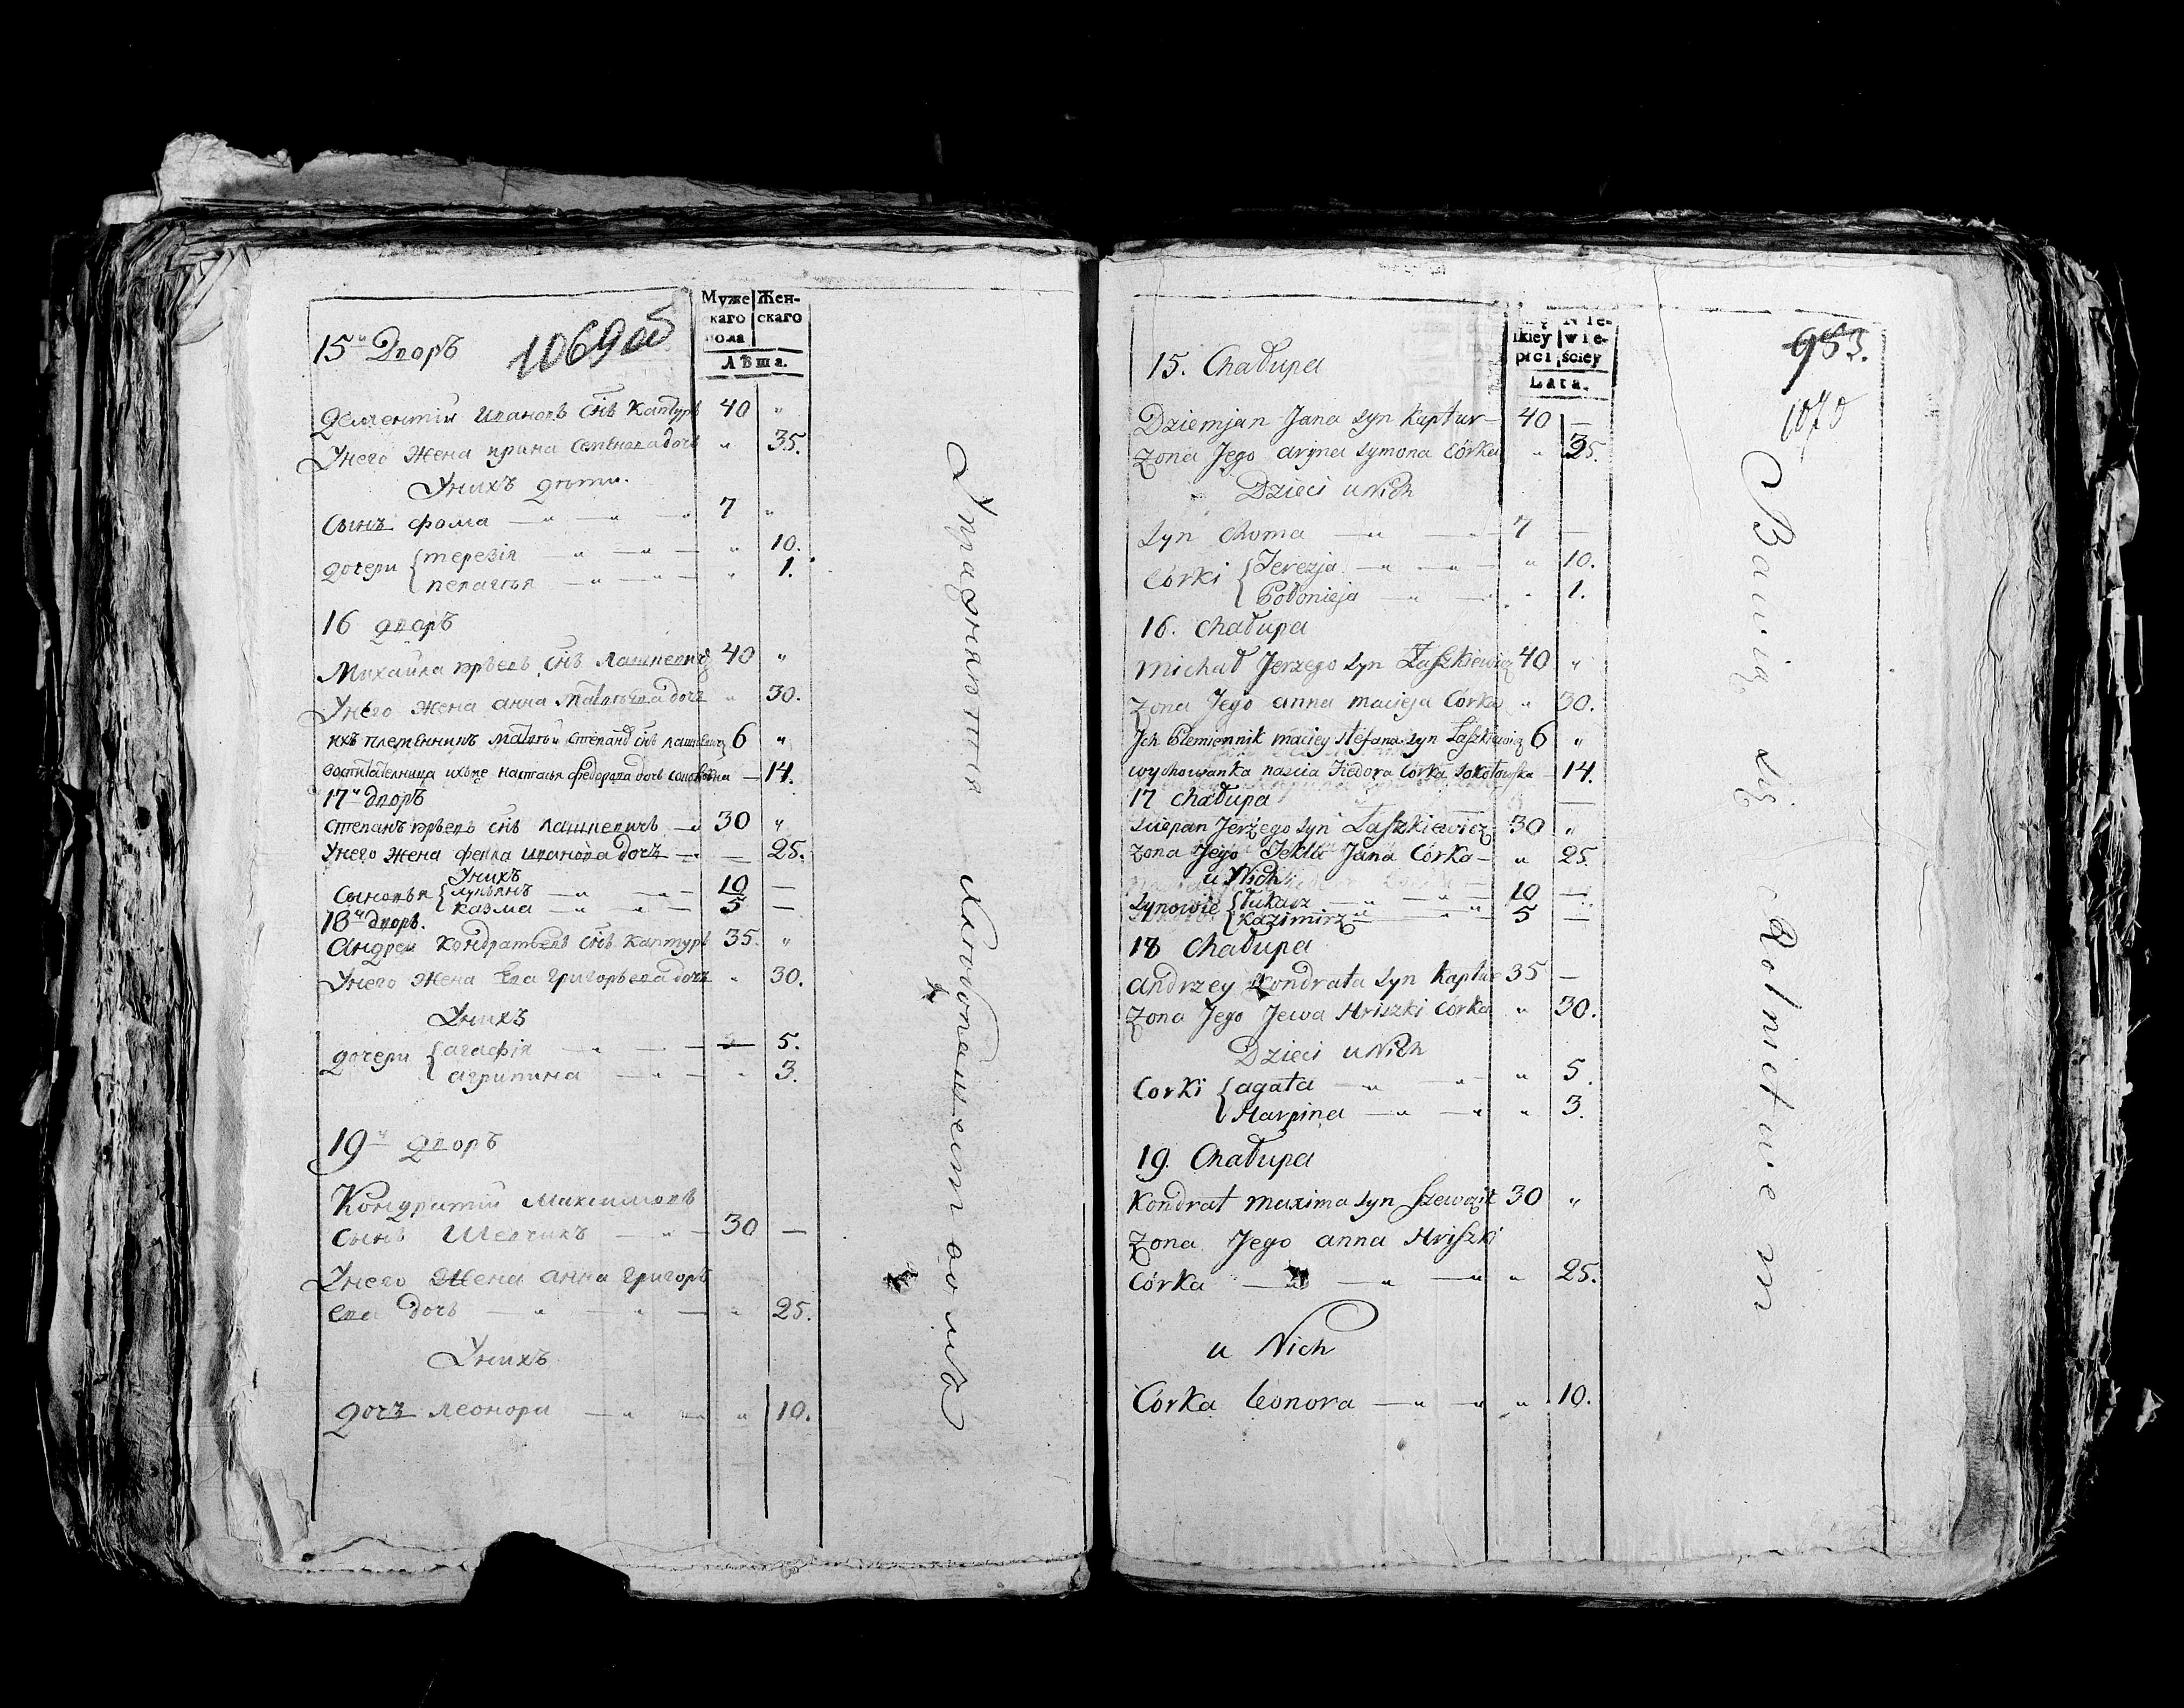 15й Дворъ
1069 об
Муже Жен-
каго скаго
пола
Лѣта.
Дементий Ивановъ снъ Каптуръ 40 "
Унего Жена Ирина Семенова дочь " 35.
Унихъ дѣти.
Сынъ Фома — " — " — " 7 "
Дочери { Терезія — " — " — " 10.
Пелагѣя — " — " — " 1.
16 Дворъ
Михайла Юрьевъ снъ Лашкевичъ 40 "
Унего Жена Анна Матвѣева дочь " 30.
ихъ племенникъ Матвѣй Степановъ снъ Лашкевичъ 6 "
воспитателница ихъже Настасья Федорова дочь — 14.
17й Дворъ
Степанъ Юрьевъ снъ Лашкевичъ — " 30 "
Унего Жена Фекла Иванова дочь — " — 25.
Унихъ
Сыновья { Лукьянъ — " — " — 10 —
Казма — " — " — 5 —
18й Дворъ.
Андреи Кондратьевъ снъ Каптуръ 35. "
Унего Жена Ева Григорьева дочь " 30.
Унихъ
Дочери { Агафія — " — — 5.
Агрипина — " — " 3.
19й Дворъ
Кондратий Максимовъ
сынъ Шевчикъ — " — 30 —
Унего Жена Анна Григорь
ева дочь — " — " — " 25.
Унихъ
Дочь Леонора — " — " 10.
Упражняются хлебопашествомъ
953.
1070
lkiey wie-
płci ściey
Lata.
15. Chałupa
Dziemjan Jana syn Kaptur — 40 —
Zona Jego aryna Symona Córka " 35.
Dzieci u Nich
Syn Choma — " — " 7 —
Córki { Terezja — " — " — " 10.
Połonieja — " — " 1.
16. Chałupa
Michał Jerzego syn Łaszkiewicz 40 "
Zona Jego anna macieja Córka " 30.
Jch Plemiennik maciey stefana syn Łaszkiewicz 6 "
wychowanka nascia Fiedora Córka Sokołowska — 14.
17 Chałupa
Sciepan Jerzego syn Łaszkiewicz 30 "
Zona Jego Tekla Jana Córka — " 25
u Nich
Synowie { Łukasz — " — " — 10 —
Kazimirz — " — " 5 —
18 Chałupa
Andrzey Kondrata syn Kaptur 35 —
Zona Jego Jewa Hriszki Córka " 30.
Dzieci u Nich
Corki { agata — " — " " 5.
Harpina — " — " " 3.
19. Chałupa
Kondrat maxima syn Szewczik 30 "
Zona Jego anna Hriszki
Córka — " — " — " " 25.
u Nich
Córka Leonora — " — " " 10.
Bawią się Rolnictwem